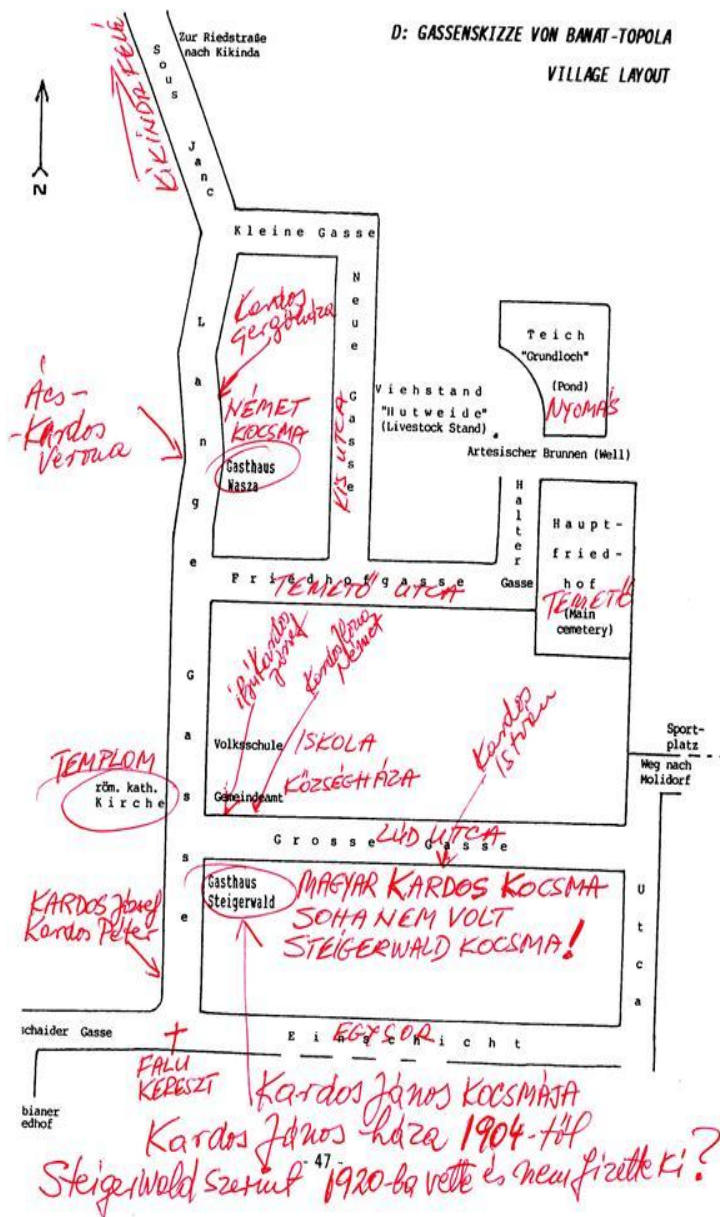 D: GASSENSKIZZE VON BANAT-TOPOLA
VILLAGE LAYOUT
Zur Riedstraße
nach Kikinda
KIKINDA FELÉ
N
Sous Janc
Kleine Gasse
Neue Gasse
KIS UTCA
Lange Gasse
Kardos
Gergő háza
Ács-
-Kardos
Verona
NÉMET
KOCSMA
Gasthaus
Wasza
Viehstand
"Hutweide"
(Livestock Stand)
Teich
"Grundloch"
(Pond)
NYOMÁS
Artesischer Brunnen (Well)
Halter
Gasse
Haupt-
fried-
hof
TEMETŐ
(Main
cemetery)
Friedhofgasse
TEMETŐ UTCA
ifjú Kardos
József
Kardos Ilona
Német
Kardos
István
Volksschule ISKOLA
Gemeindeamt KÖZSÉGHÁZA
TEMPLOM
röm. kath.
Kirche
Sport-
platz
Weg nach
Molidorf
Grosse Gasse
LÚD UTCA
Utca
Gasthaus
Steigerwald
MAGYAR KARDOS KOCSMA
SOHA NEM VOLT
STEIGERWALD KOCSMA!
KARDOS József
Kardos Péter
chaider Gasse
Einschicht
EGYSOR
FALU
KERESZT
bianer
edhof
Kardos János KOCSMÁJA
Kardos János háza 1904-től
- 47 -
Steigerwald szerint 1920-ba vette és nem fizette ki?